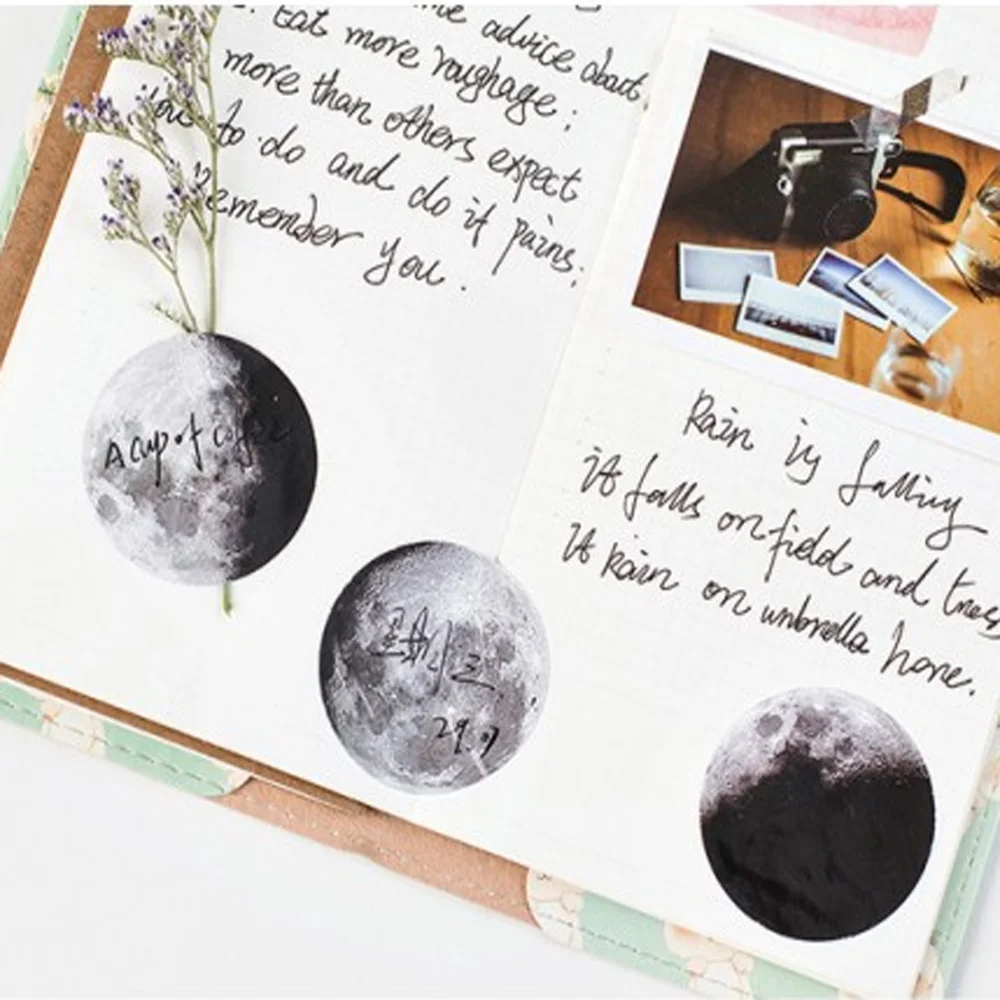 me advice about
Eat more roughage;
more than others expect
You to do and do it pains.
remember you.
A cup of coffee
星期三
29.7
Rain is falling
it falls on field and trees
It rain on unbrella hore.